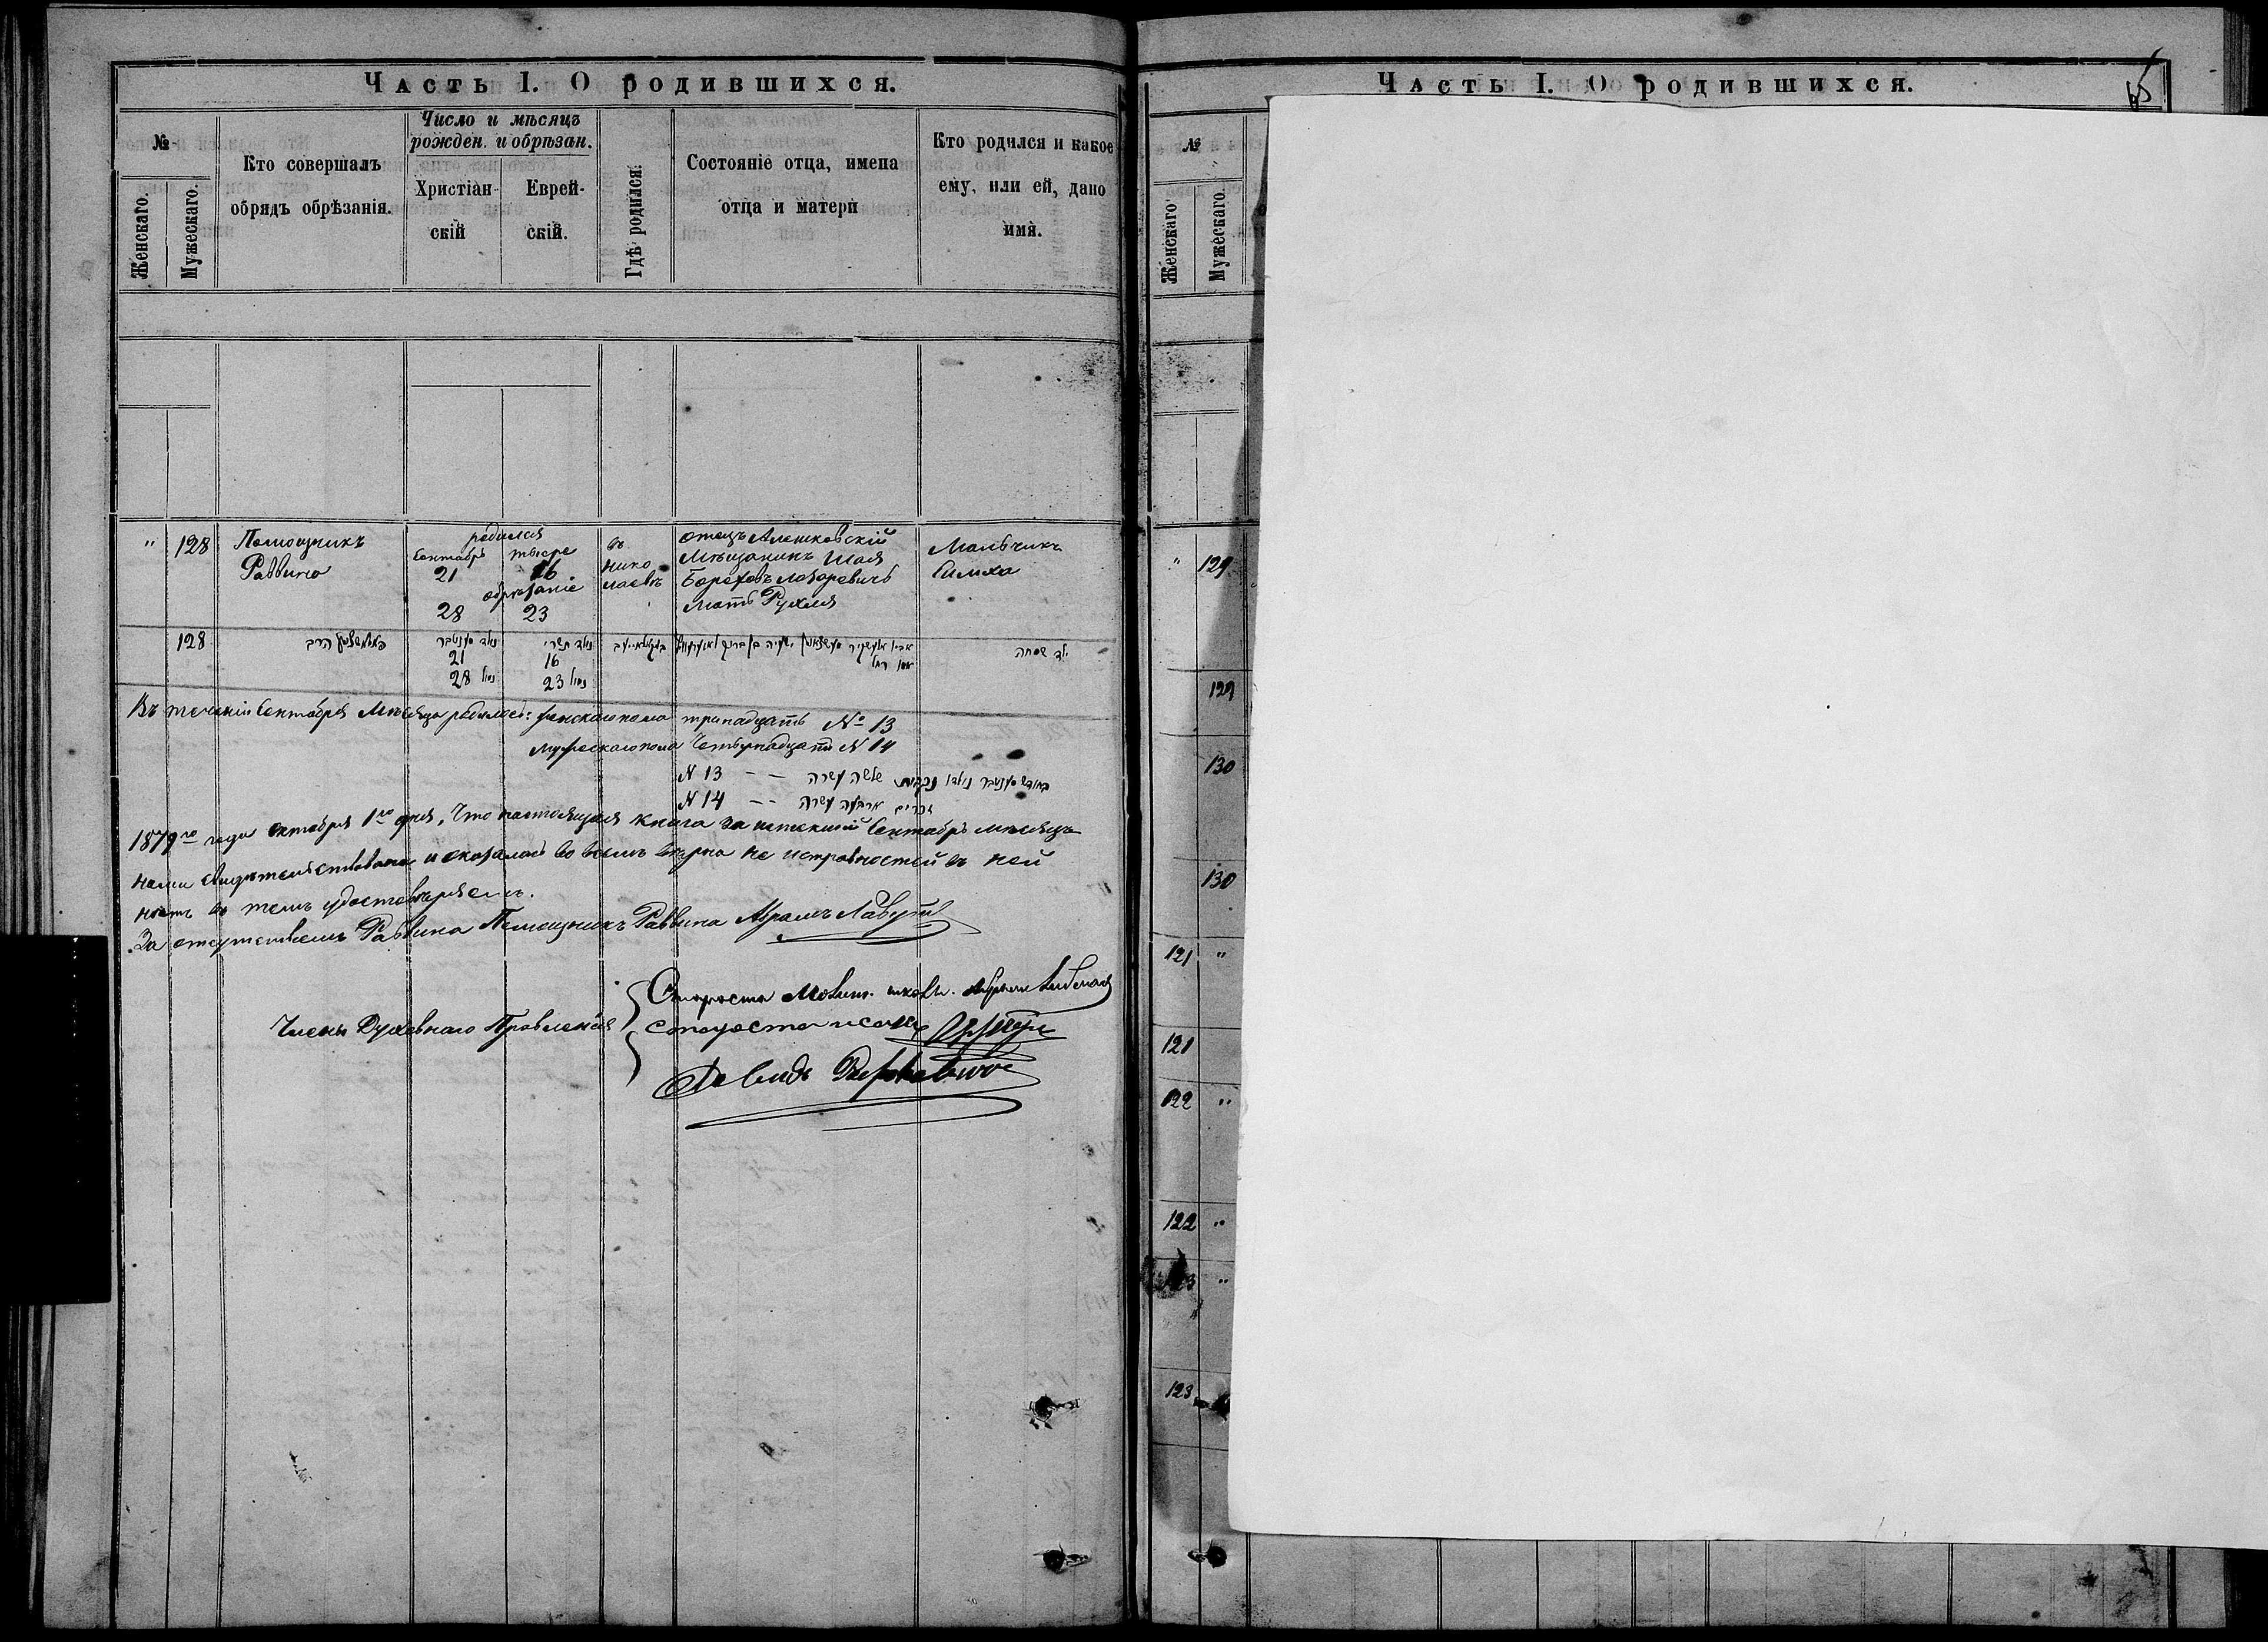 Часть I. О родившихся.
№
Женскаго.
Мужескаго.
Кто совершалъ
обрядъ обрѣзанія.
Число и мѣсяцъ
рожден. и обрѣзан.
Христіан-
скій
Еврей-
скій.
Гдѣ родился.
Состояніе отца, имена
отца и матери
Кто родился и какое
ему, или ей, дано
имя.
" 128
Помощникъ
Раввина
родился
Сентябрь
21
тишре
16
обрезаніе
28 23
въ
Нико
лаевѣ
отецъ Алешковскій
Мѣщанинъ Шая
Лазаревичъ
мать Рухля
Мальчикъ
Симха
128
הרב
נולד
21
נולד תשרי
16
נימול 28
נימול 23
ילד שמחה
Въ теченіи Сентября Мѣсяца родилось: женскаго пола тринадцать № 13
Мужескаго пола Четырнадцать N 14
בחודש סענטבר נולדו נקבות שלשה עשרה - - N 13
זכרים ארבעה עשרה - - N 14
1879го года октября 1го дня, Что настоящая книга за истекшій Сентябрь мѣсяцъ
нами свидѣтельствована и оказалась во всемъ вѣрна не исправностей въ ней
нѣтъ въ темъ удостовѣряемъ.
За отсутствіемъ Раввина Помощникъ Раввина Абрамъ Лавутъ
Члены Духовнаго Правленія
Староста Молит. школы.
староста
Давидъ
Часть I. О родившихся.
65
№
Женскаго
Мужескаго.
" 129
129
130
130
121 "
121
122 "
122 "
123 "
123